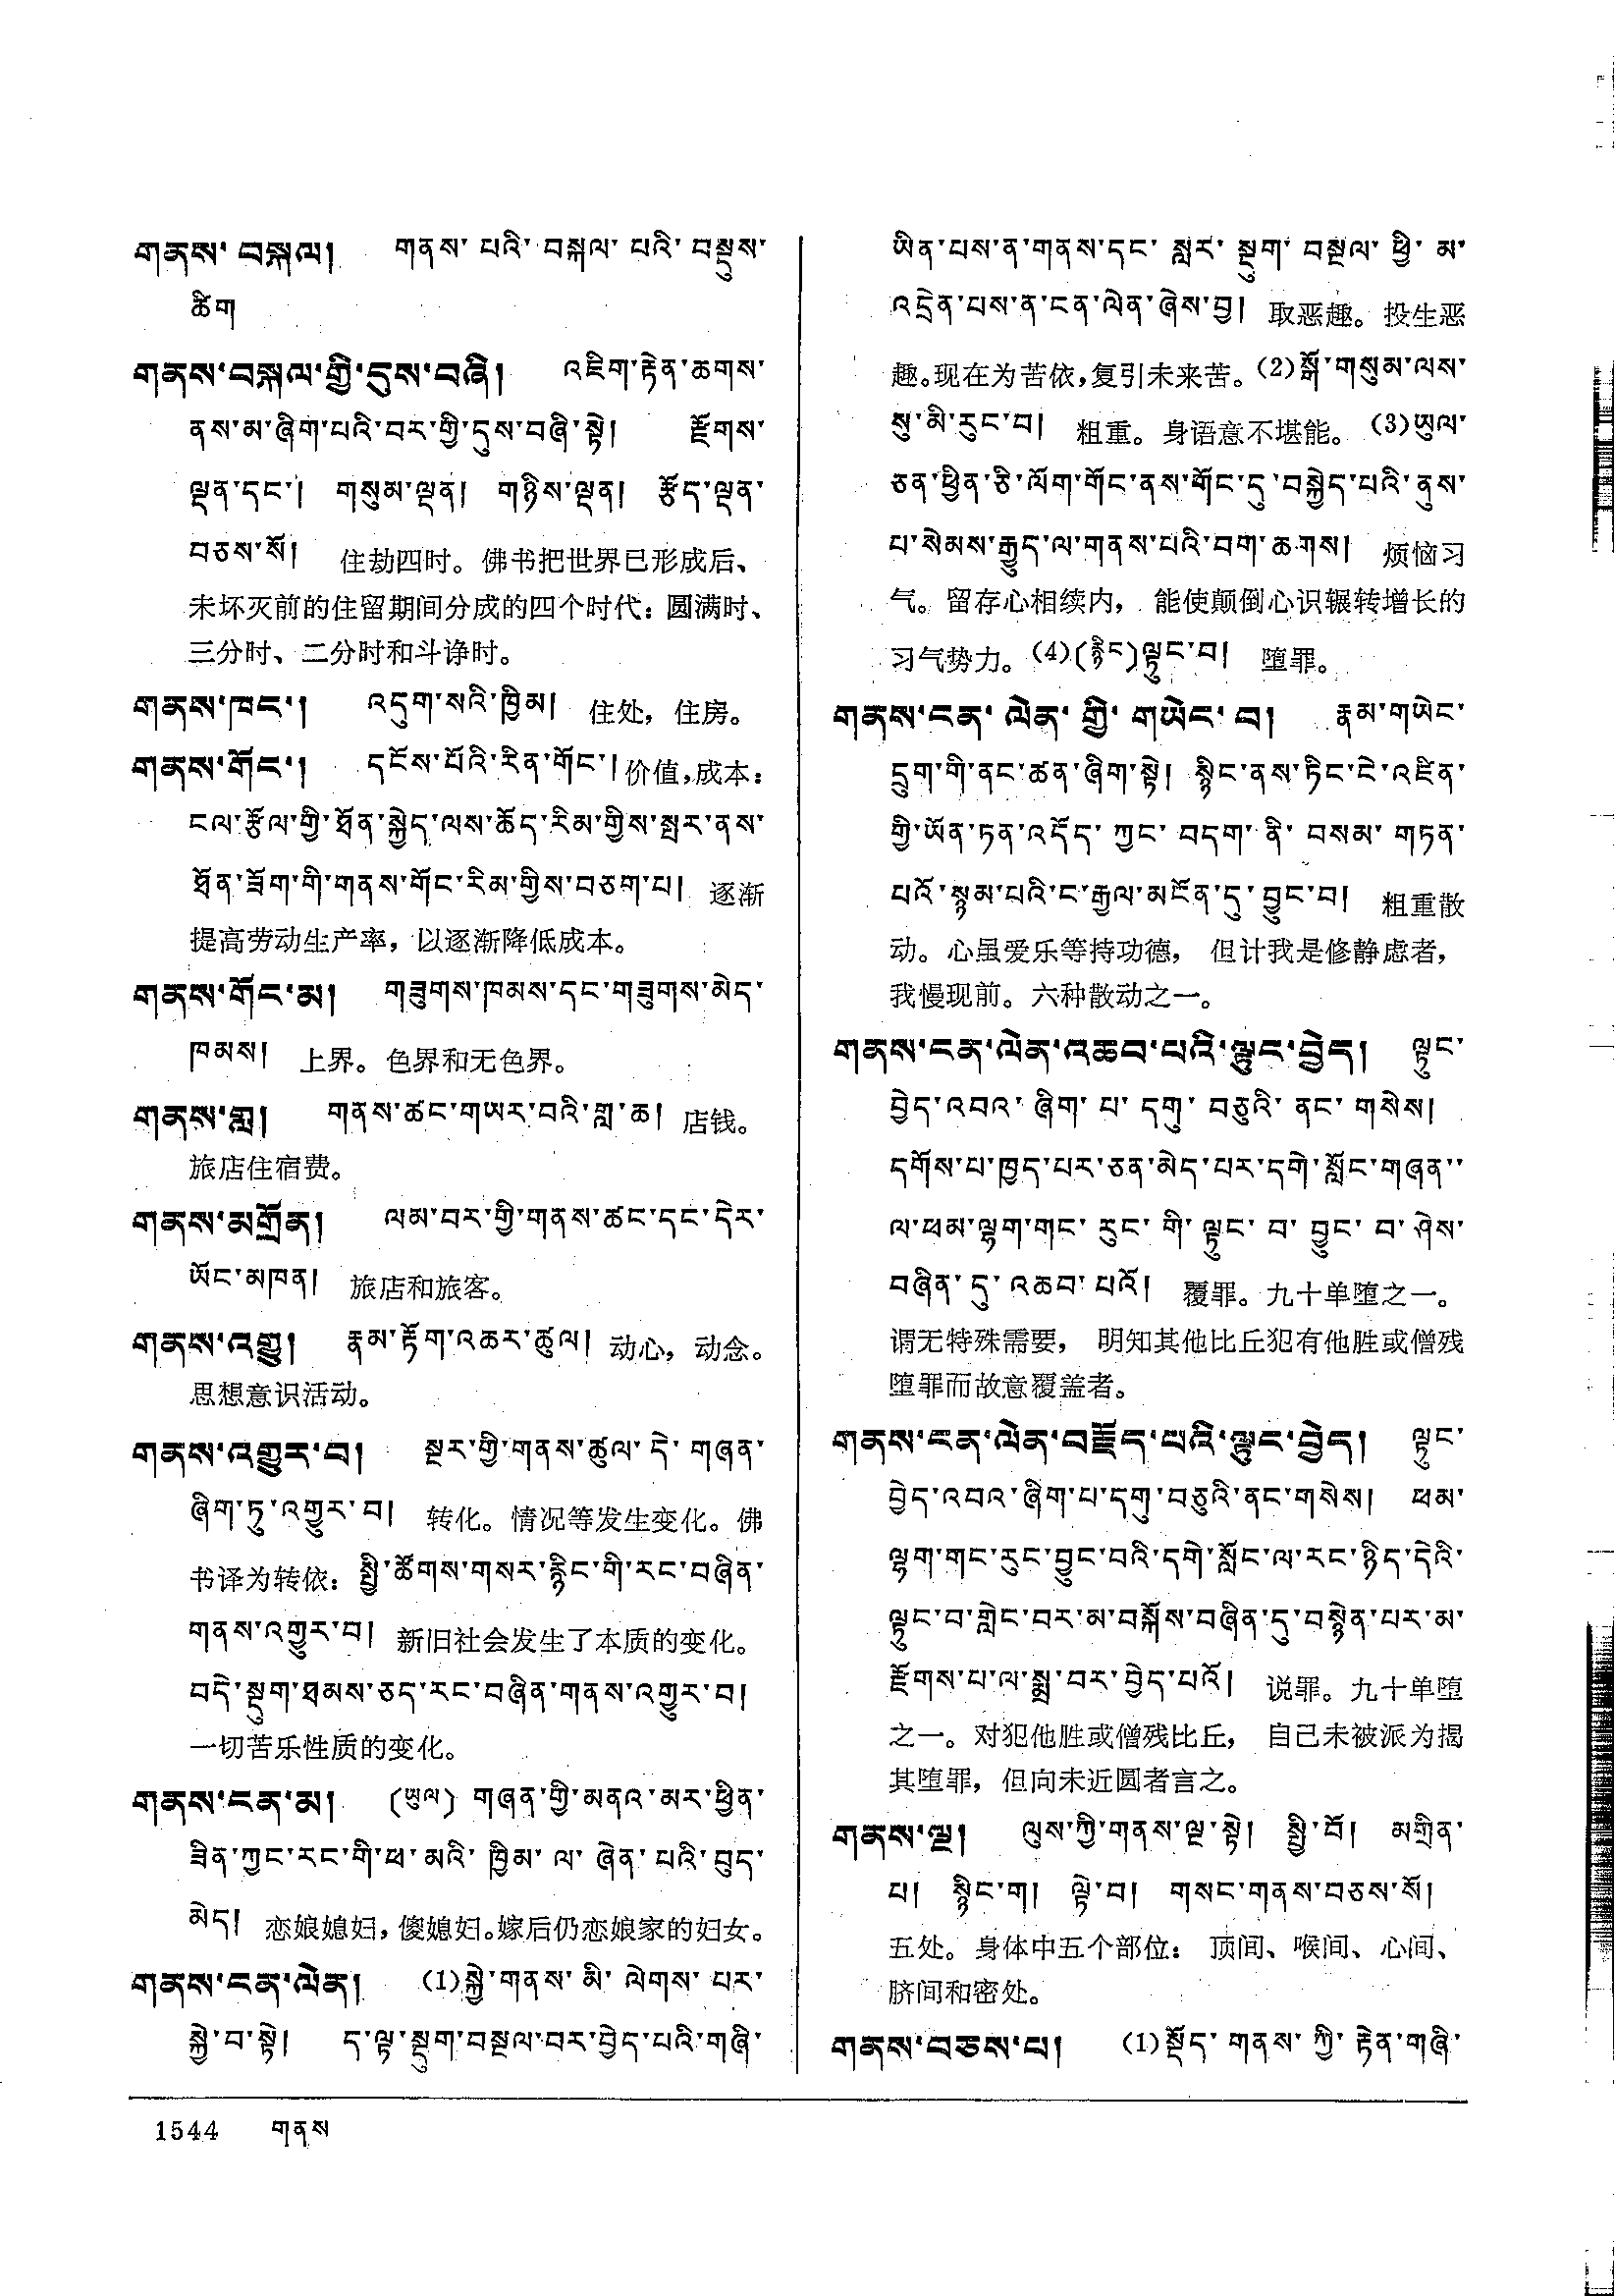 གནས་བསྐལ། གནས་པའི་བསྐལ་པའི་བསྡུས་
ཚིག
གནས་བསྐལ་གྱི་དུས་བཞི། འཇིག་རྟེན་ཆགས་
ནས་མ་ཞིག་པའི་བར་གྱི་དུས་བཞི་སྟེ། རྫོགས་
ལྡན་དང་། གསུམ་ལྡན། གཉིས་ལྡན། རྩོད་ལྡན་
བཅས་སོ། 住劫四时。佛书把世界已形成后、
未坏灭前的住留期间分成的四个时代：圆满时、
三分时、二分时和斗诤时。
གནས་ཁང་། འདུག་སའི་ཁྱིམ། 住处，住房。
གནས་གོང་། དངོས་པོའི་རིན་གོང་། 价值，成本：
ངལ་རྩོལ་གྱི་ཐོན་སྐྱེད་ལས་ཆོད་རིམ་གྱིས་སྤར་ནས་
ཐོན་ཟོག་གི་གནས་གོང་རིམ་གྱིས་བཅག་པ། 逐渐
提高劳动生产率，以逐渐降低成本。
གནས་གོང་མ། གཟུགས་ཁམས་དང་གཟུགས་མེད་
ཁམས། 上界。色界和无色界。
གནས་གླ། གནས་ཚང་གཡར་བའི་གླ་ཆ། 店钱。
旅店住宿费。
གནས་མགྲོན། ལམ་བར་གྱི་གནས་ཚང་དང་དེར་
ཡོང་མཁན། 旅店和旅客。
གནས་འགྱུ། རྣམ་རྟོག་འཆར་ཚུལ། 动心，动念。
思想意识活动。
གནས་འགྱུར་བ། སྔར་གྱི་གནས་ཚུལ་དེ་གཞན་
ཞིག་ཏུ་འགྱུར་བ། 转化。情况等发生变化。佛
书译为转依：སྤྱི་ཚོགས་གསར་རྙིང་གི་རང་བཞིན་
གནས་འགྱུར་བ། 新旧社会发生了本质的变化。
བདེ་སྡུག་ཐམས་ཅད་རང་བཞིན་གནས་འགྱུར་བ།
一切苦乐性质的变化。
གནས་ངན་མ། (ཡུལ) གཞན་གྱི་མནའ་མར་ཕྱིན་
ཟིན་ཀྱང་རང་གི་ཕ་མའི་ཁྱིམ་ལ་ཞེན་པའི་བུད་
མེད། 恋娘媳妇，傻媳妇。嫁后仍恋娘家的妇女。
གནས་ངན་ལེན། (1)སྐྱེ་གནས་མི་ལེགས་པར་
སྐྱེ་བ་སྟེ། ད་ལྟ་སྡུག་བསྔལ་བར་བྱེད་པའི་གཞི་
ཡིན་པས་ན་གནས་དང་སླར་སྡུག་བསྔལ་ཕྱི་མ་
འདྲེན་པས་ན་ངན་ལེན་ཞེས་བྱ། 取恶趣。投生恶
趣。现在为苦依，复引未来苦。(2)སྒོ་གསུམ་ལས་
སུ་མི་རུང་བ། 粗重。身语意不堪能。(3)ཡུལ་
ཅན་ཕྱིན་ཅི་ལོག་གོང་ནས་གོང་དུ་བསྐྱེད་པའི་ནུས་
པ་སེམས་རྒྱུད་ལ་གནས་པའི་བག་ཆགས། 烦恼习
气。留存心相续内，能使颠倒心识辗转增长的
习气势力。(4)(རྙིང)ལྟུང་བ། 堕罪。
གནས་ངན་ལེན་གྱི་གཡེང་བ། རྣམ་གཡེང་
དྲུག་གི་ནང་ཚན་ཞིག་སྟེ། སྙིང་ནས་ཏིང་ངེ་འཛིན་
གྱི་ཡོན་ཏན་འདོད་ཀྱང་བདག་ནི་བསམ་གཏན་
པའོ་སྙམ་པའི་ང་རྒྱལ་མངོན་དུ་བྱུང་བ། 粗重散
动。心虽爱乐等持功德，但计我是修静虑者，
我慢现前。六种散动之一。
གནས་ངན་ལེན་འཆབ་པའི་ལྟུང་བྱེད། ལྟུང་
བྱེད་འབའ་ཞིག་པ་དགུ་བཅུའི་ནང་གསེས།
དགོས་པ་ཁྱད་པར་ཅན་མེད་པར་དགེ་སློང་གཞན་་
ལ་ཕམ་ལྷག་གང་རུང་གི་ལྟུང་བ་བྱུང་བ་ཤེས་
བཞིན་དུ་འཆབ་པའོ། 覆罪。九十单堕之一。
谓无特殊需要，明知其他比丘犯有他胜或僧残
堕罪而故意覆盖者。
གནས་ངན་ལེན་བརྗོད་པའི་ལྟུང་བྱེད། ལྟུང་
བྱེད་འབའ་ཞིག་པ་དགུ་བཅུའི་ནང་གསེས། ཕམ་
ལྷག་གང་རུང་བྱུང་བའི་དགེ་སློང་ལ་རང་ཉིད་དེའི་
ལྟུང་བ་གླེང་བར་མ་བསྐོས་བཞིན་དུ་བསྙེན་པར་མ་
རྫོགས་པ་ལ་སྨྲ་བར་བྱེད་པའོ། 说罪。九十单堕
之一。对犯他胜或僧残比丘，自己未被派为揭
其堕罪，但向未近圆者言之。
གནས་ལྔ། ལུས་ཀྱི་གནས་ལྔ་སྟེ། སྤྱི་བོ། མགྲིན་
པ། སྙིང་ག། ལྟེ་བ། གསང་གནས་བཅས་སོ།
五处。身体中五个部位：顶间、喉间、心间、
脐间和密处。
གནས་བཅས་པ། (1)སྡོད་གནས་ཀྱི་རྟེན་གཞི་
1544 གནས